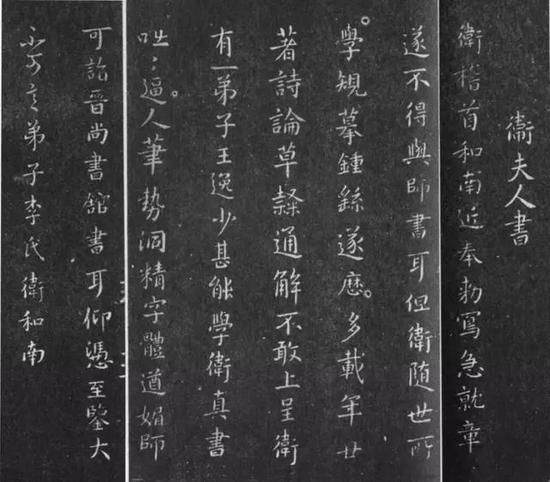 衞夫人書
衛稽首和南近奉勑寫急就章
遂不得與師書耳但衛隨世所
學規摹鍾繇遂歷多載年廿
著詩論草隸通解不敢上呈衛
有一弟子王逸少甚能學衛真書
咄咄逼人筆勢洞精字體遒媚師
可詣晉尚書館書耳仰憑至鑒大
不可言弟子李氏衛和南